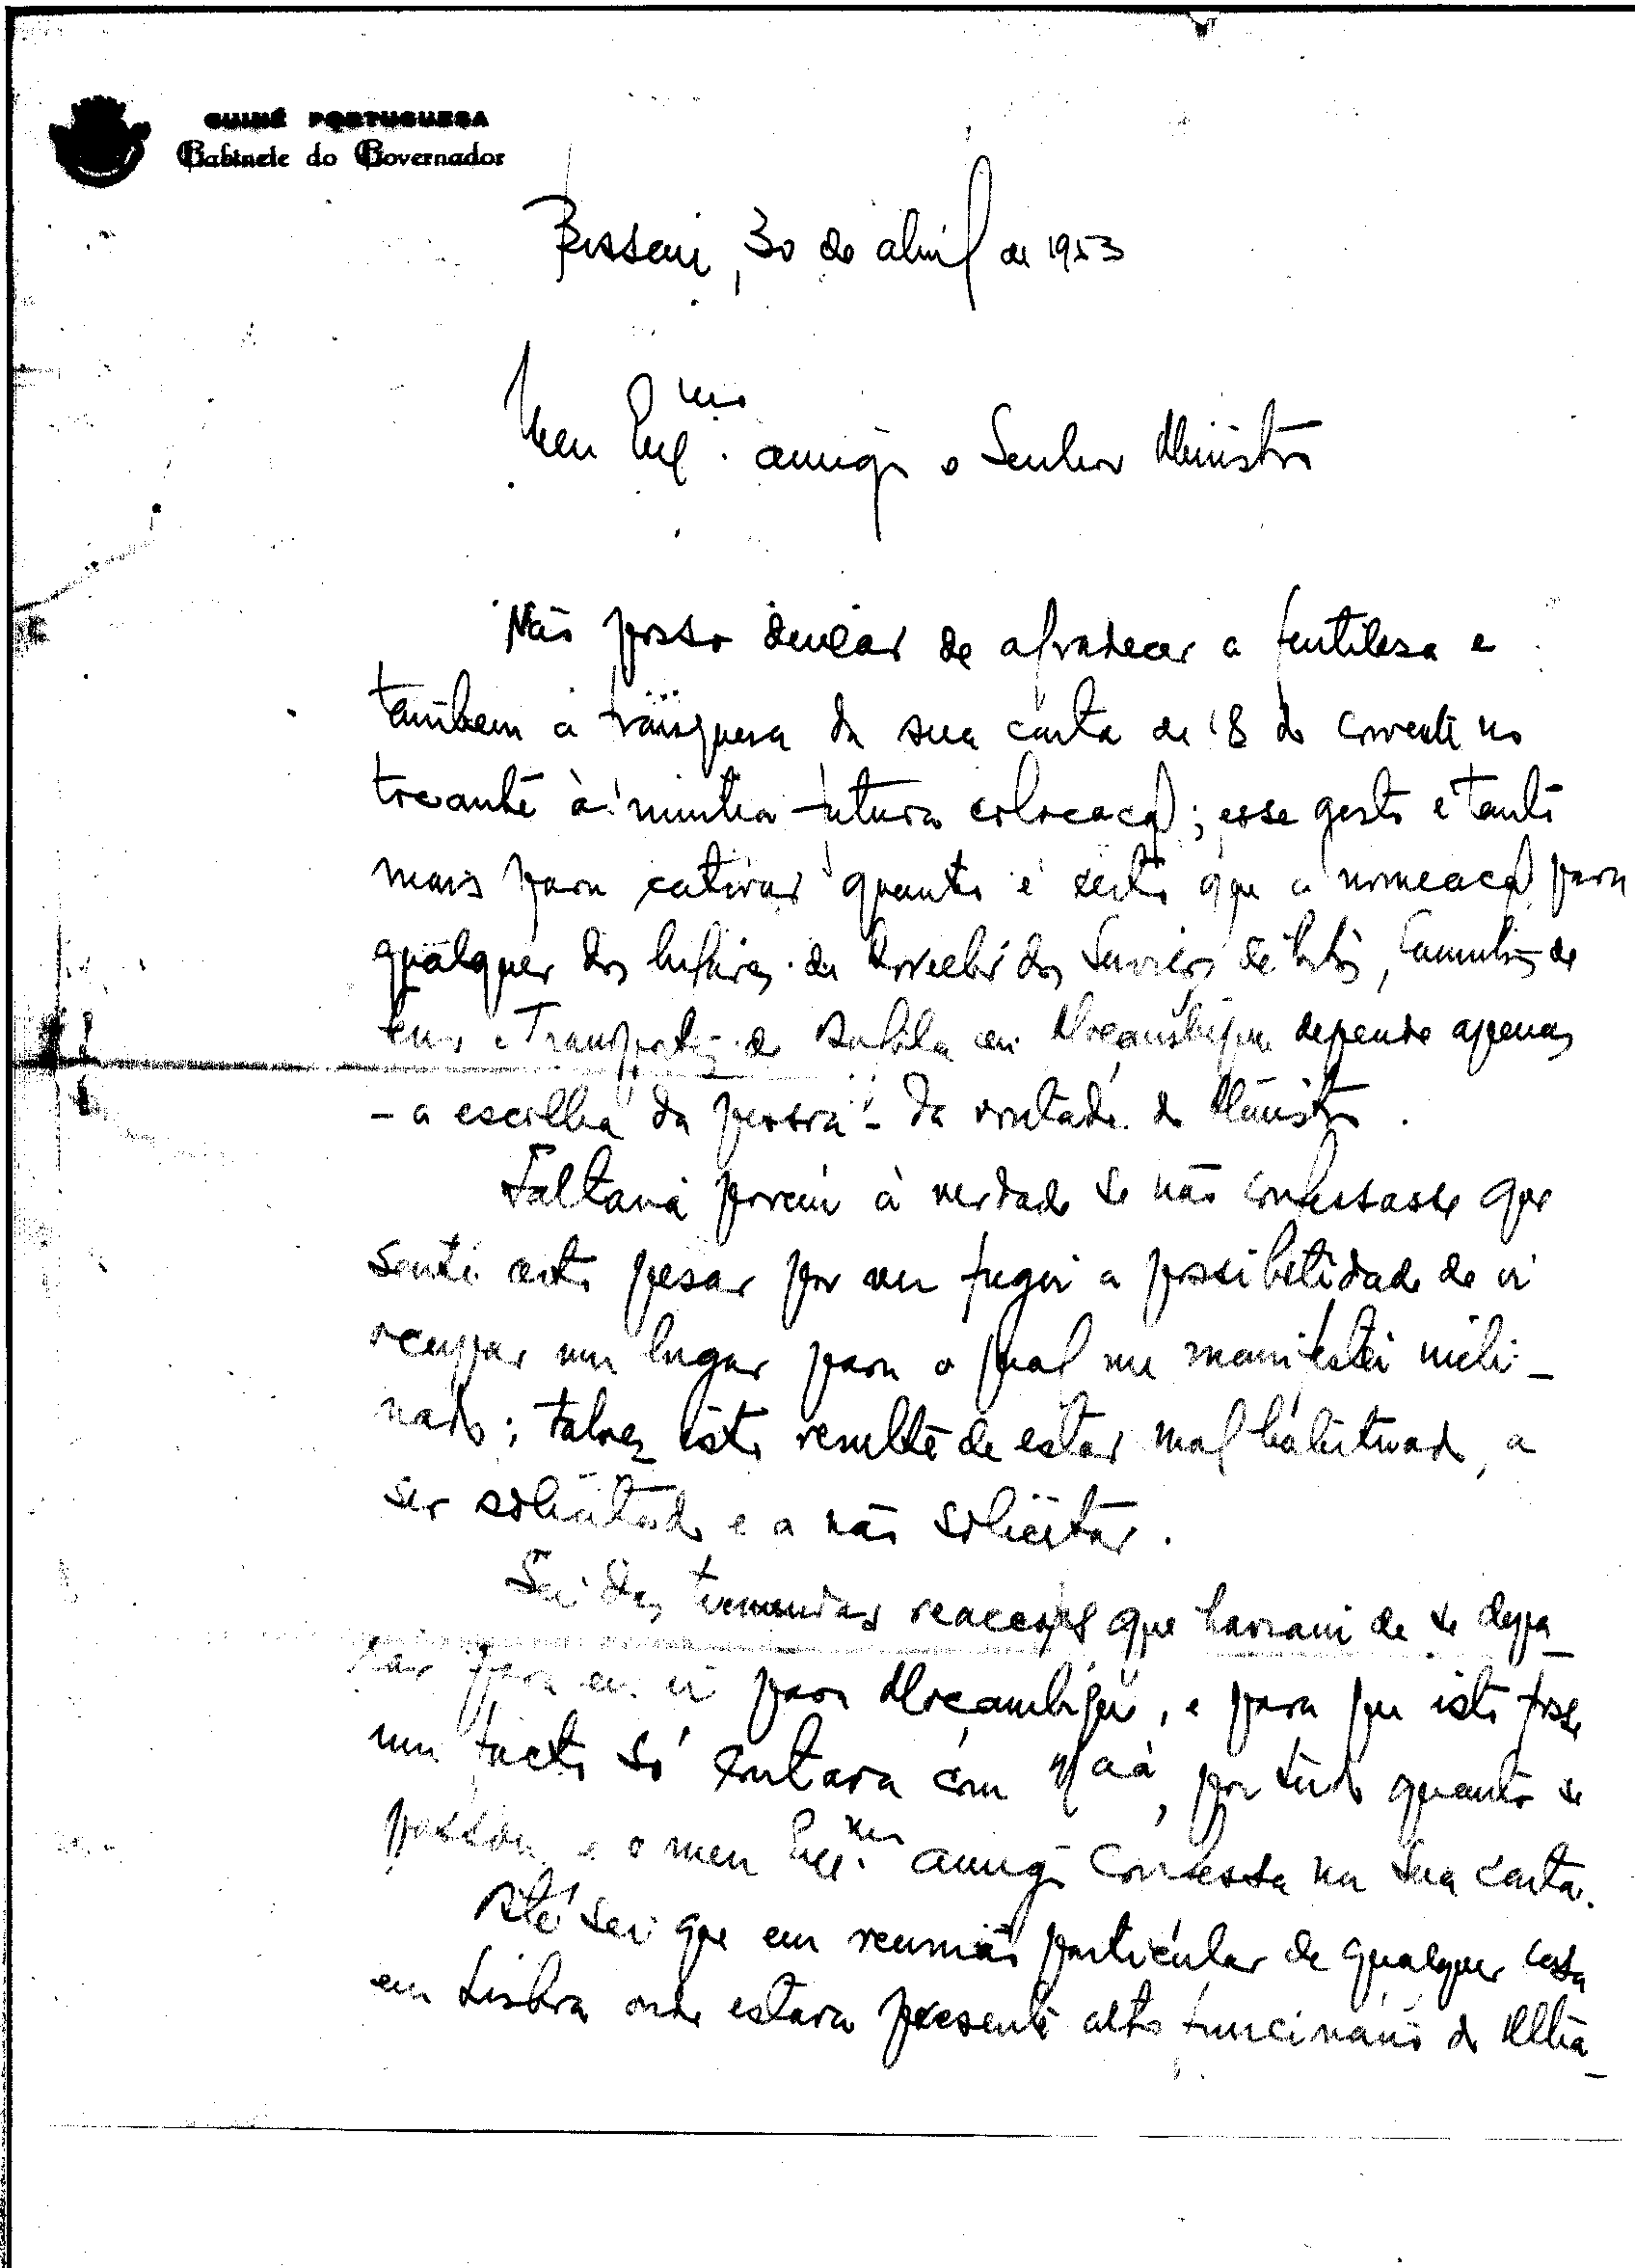 GUINÉ PORTUGUESA
Gabinete do Governador
Bissau, 30 de abril de 1953
Meu Exmo. amigo o Senhor Ministro
Não posso deixar de agradecer a gentilesa e
tambem a franquesa da sua carta de 18 do corrente no
tocante à minha futura colocação; esse gesto é tanto
mais para cativar quanto é certo que a nomeação para
qualquer dos lugares da dos Serviços de Portos, Caminhos de
ferro e Transportes de em Moçambique depende apenas
- a escolha da pessoa - da vontade do Ministro.
Faltaria porém à verdade se não confessasse que
senti certo pesar por ver fugir a possibilidade de ir
ocupar um lugar para o qual me manifestei incli-
nado; talvez isto resulte de estar mal habituado, a
ser solicitado e a não solicitar.
Sei das tremendas reacções que haviam de se depa-
rar para eu ir para Moçambique, e para que isto fosse
um facto só contava com V. por tudo quanto se
passou e o meu Exmo. amigo confessa na sua carta.
Até sei que em reunião particular de qualquer casa
em Lisboa onde estava presente alto funcionário do